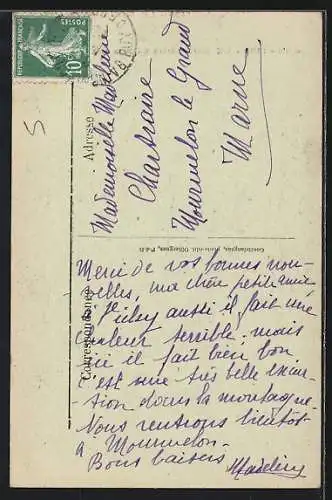 5
RÉPUBLIQUE FRANÇAISE
POSTES
10
Adresse
Mademoiselle Madeleine
Chartraire
Mourmelon le Grand
Marne
Correspondance
Merci de vos bonnes nou-
velles, ma chère petite amie
aussi il fait une
chaleur terrible, mais
ici il fait bien bon,
c'est une très belle excur-
sion dans la montagne.
Nous rentrons bientôt
à Mourmelon.
Bons baisers
Madeleine